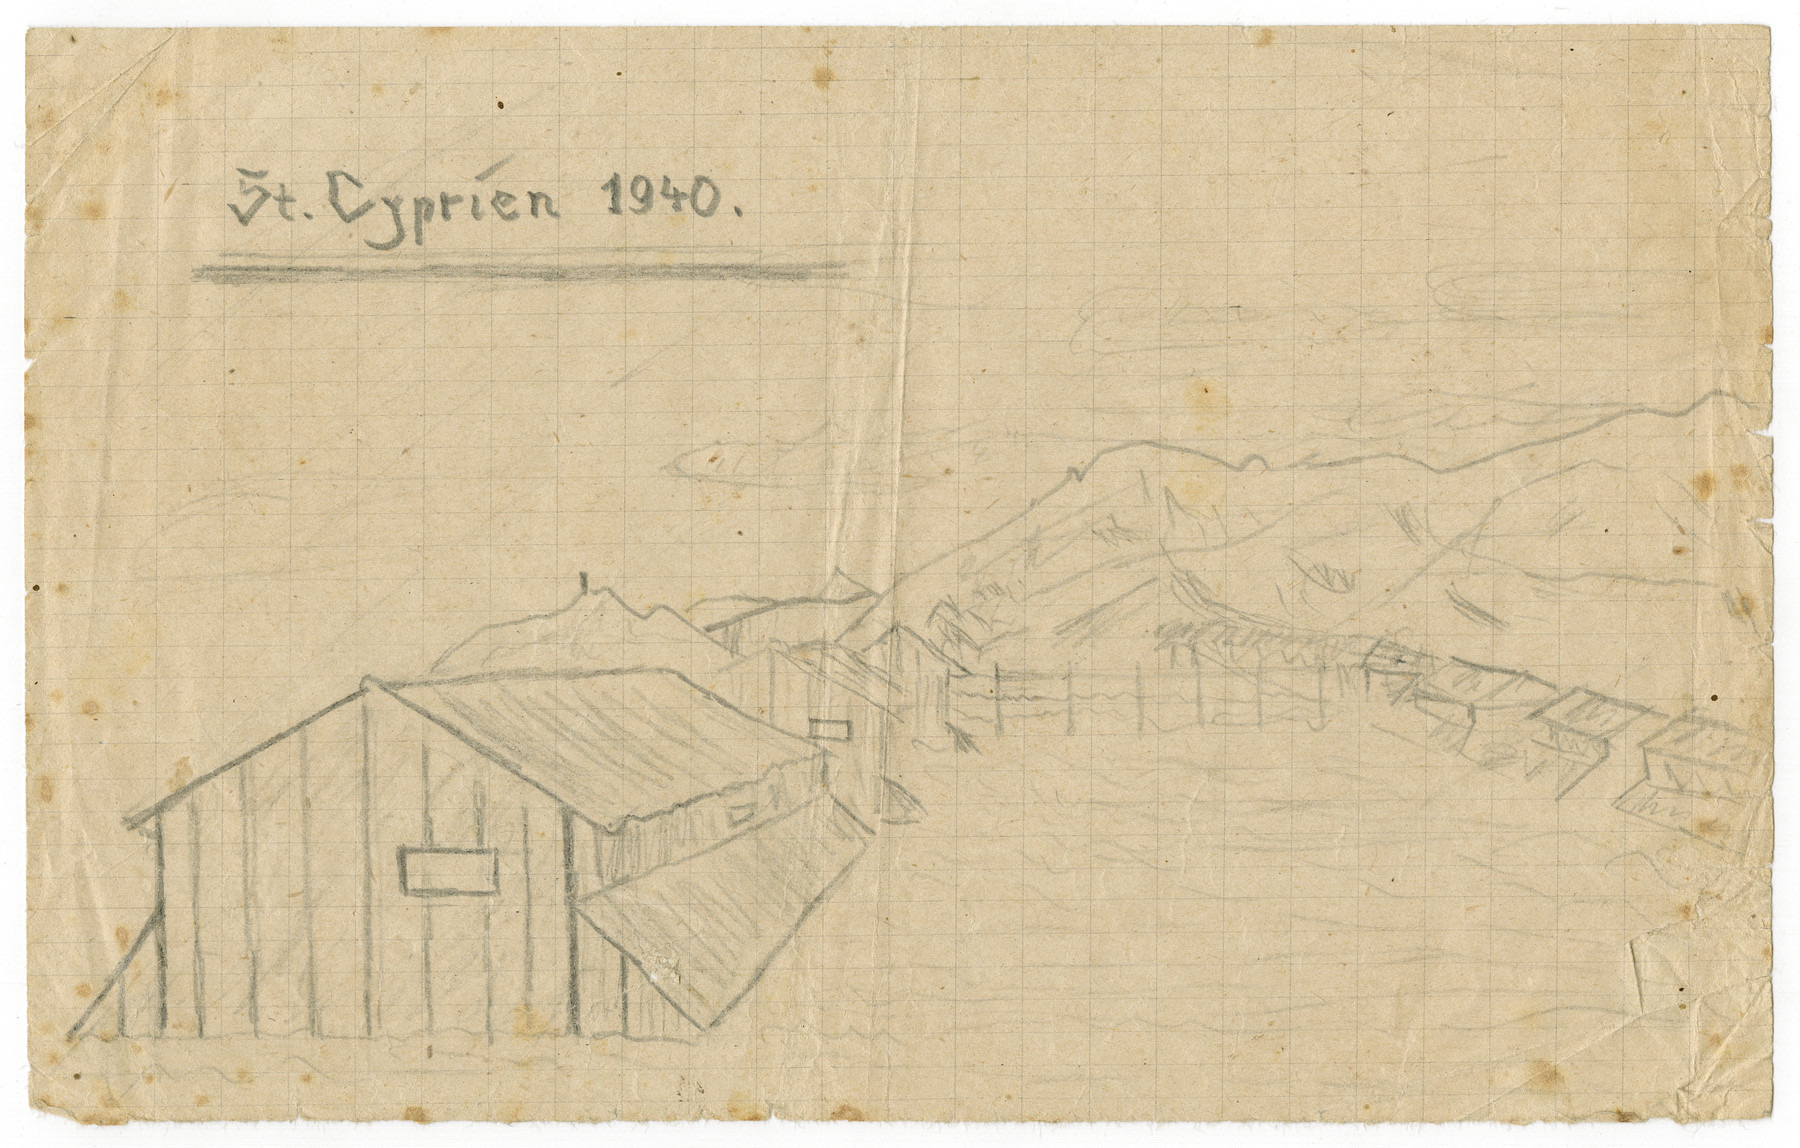 St. Cyprien 1940.